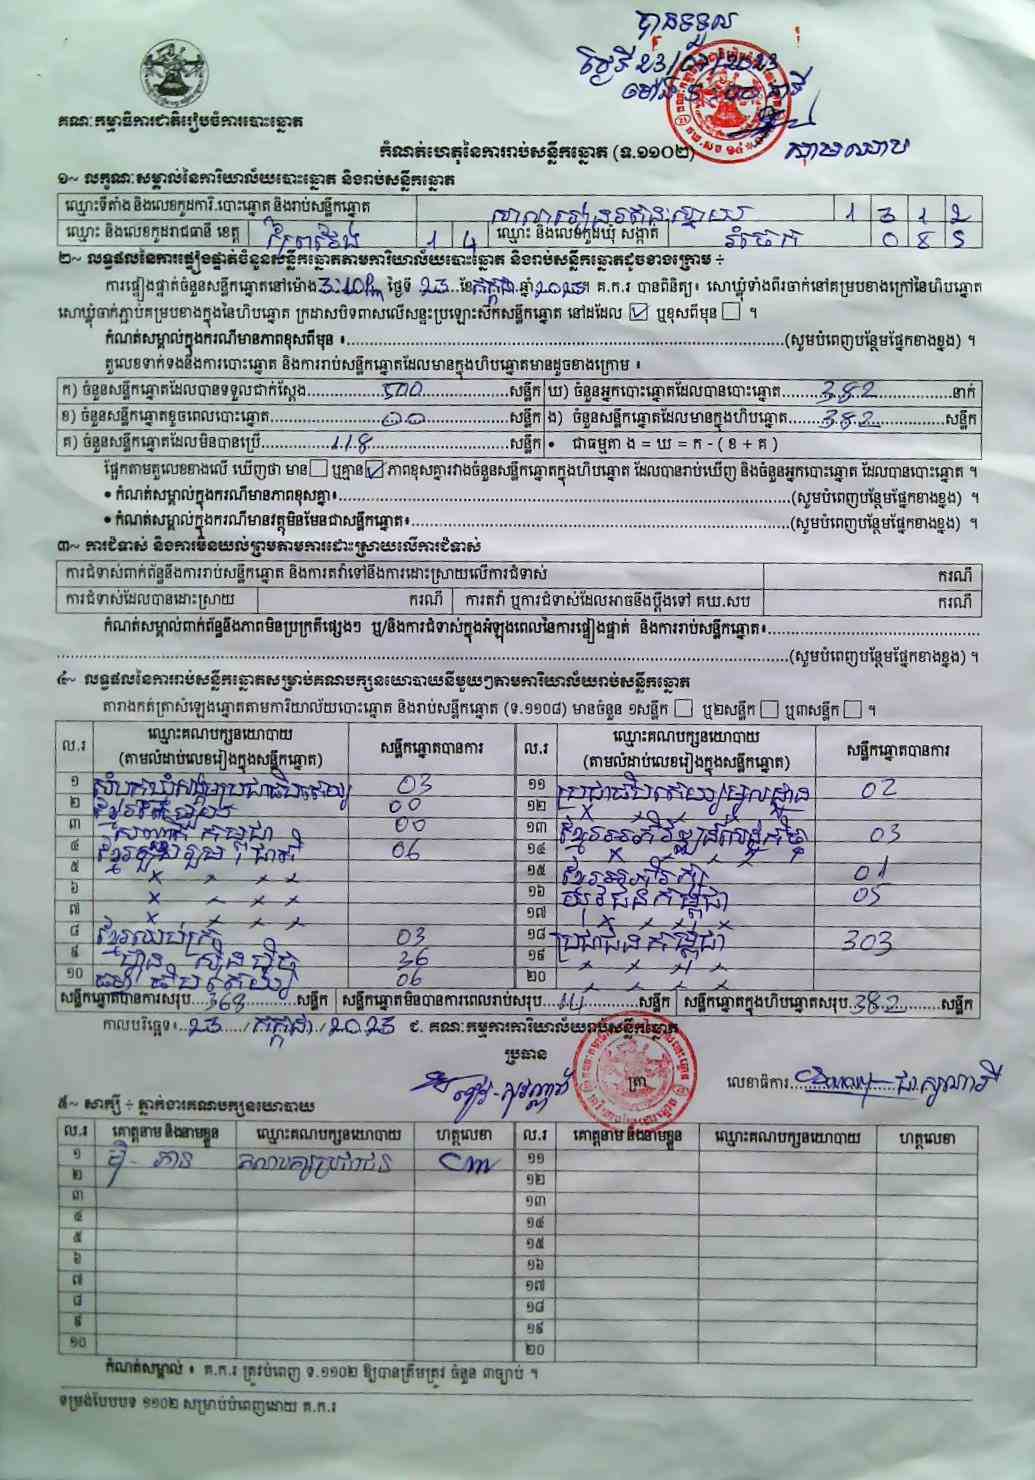 បានទទួល
ថ្ងៃទី 23
ម៉ោង
គណៈកម្មាធិការជាតិរៀបចំការបោះឆ្នោត
កំណត់ហេតុនៃការរាប់សន្លឹកឆ្នោត (ទ.១១០២)
១~ លក្ខណៈសម្គាល់នៃការិយាល័យបោះឆ្នោត និងរាប់សន្លឹកឆ្នោត
ឈ្មោះទីតាំង និងលេខកូដការិ.បោះឆ្នោត និងរាប់សន្លឹកឆ្នោត 1 3 1 2
ឈ្មោះ និងលេខកូដរាជធានី ខេត្ត ព្រៃវែង 1 4 ឈ្មោះ និងលេខកូដឃុំ សង្កាត់ រំចេក 0 8 5
២~ លទ្ធផលនៃការផ្ទៀងផ្ទាត់ចំនួនសន្លឹកឆ្នោតតាមការិយាល័យបោះឆ្នោត និងរាប់សន្លឹកឆ្នោតដូចខាងក្រោម ÷
ការផ្ទៀងផ្ទាត់ចំនួនសន្លឹកឆ្នោតនៅម៉ោង 3:10Pm ថ្ងៃទី 23 ខែ កក្កដា ឆ្នាំ 2023។ គ.ក.រ បានពិនិត្យ៖ សោឃ្លុំទាំងពីរចាក់នៅគម្របខាងក្រៅនៃហិបឆ្នោត
សោឃ្លុំចាក់ភ្ជាប់គម្របខាងក្នុងនៃហិបឆ្នោត ក្រដាសបិទពាសលើសន្ទះប្រឡោះសឹកសន្លឹកឆ្នោត នៅដដែល ☑ ឬខុសពីមុន ☐ ។
កំណត់សម្គាល់ក្នុងករណីមានភាពខុសពីមុន ៖ (សូមបំពេញបន្ថែមផ្នែកខាងខ្នង) ។
តួលេខទាក់ទងនឹងការបោះឆ្នោត និងការរាប់សន្លឹកឆ្នោតដែលមានក្នុងហិបឆ្នោតមានដូចខាងក្រោម ៖
ក) ចំនួនសន្លឹកឆ្នោតដែលបានទទួលជាក់ស្តែង 500 សន្លឹក ឃ) ចំនួនអ្នកបោះឆ្នោតដែលបានបោះឆ្នោត 382 នាក់
ខ) ចំនួនសន្លឹកឆ្នោតខូចពេលបោះឆ្នោត 00 សន្លឹក ង) ចំនួនសន្លឹកឆ្នោតដែលមានក្នុងហិបឆ្នោត 382 សន្លឹក
គ) ចំនួនសន្លឹកឆ្នោតដែលមិនបានប្រើ 118 សន្លឹក • ជាធម្មតា ង = ឃ = ក - ( ខ + គ )
ផ្អែកតាមតួលេខខាងលើ ឃើញថា មាន ☐ ឬគ្មាន ☑ ភាពខុសគ្នារវាងចំនួនសន្លឹកឆ្នោតក្នុងហិបឆ្នោត ដែលបានរាប់ឃើញ និងចំនួនអ្នកបោះឆ្នោត ដែលបានបោះឆ្នោត ។
• កំណត់សម្គាល់ក្នុងករណីមានភាពខុសគ្នា៖ (សូមបំពេញបន្ថែមផ្នែកខាងខ្នង) ។
• កំណត់សម្គាល់ក្នុងករណីមានវត្ថុមិនមែនជាសន្លឹកឆ្នោត៖ (សូមបំពេញបន្ថែមផ្នែកខាងខ្នង) ។
៣~ ការជំទាស់ និងការមិនយល់ព្រមតាមការដោះស្រាយលើការជំទាស់
ការជំទាស់ពាក់ព័ន្ធនឹងការរាប់សន្លឹកឆ្នោត និងការតវ៉ាទៅនឹងការដោះស្រាយលើការជំទាស់ ករណី
ការជំទាស់ដែលបានដោះស្រាយ ករណី ការតវ៉ា ឬការជំទាស់ដែលអាចនឹងប្តឹងទៅ គឃ.សប ករណី
កំណត់សម្គាល់ពាក់ព័ន្ធនឹងភាពមិនប្រក្រតីផ្សេងៗ ឬ/និងការជំទាស់ក្នុងអំឡុងពេលនៃការផ្ទៀងផ្ទាត់ និងការរាប់សន្លឹកឆ្នោត៖
(សូមបំពេញបន្ថែមផ្នែកខាងខ្នង) ។
៤~ លទ្ធផលនៃការរាប់សន្លឹកឆ្នោតសម្រាប់គណបក្សនយោបាយនីមួយៗតាមការិយាល័យរាប់សន្លឹកឆ្នោត
តារាងកត់ត្រាសំឡេងឆ្នោតតាមការិយាល័យបោះឆ្នោត និងរាប់សន្លឹកឆ្នោត (ទ.១១០៨) មានចំនួន ១សន្លឹក ☐ ឬ២សន្លឹក ☐ ឬ៣សន្លឹក ☐ ។
ល.រ ឈ្មោះគណបក្សនយោបាយ (តាមលំដាប់លេខរៀងក្នុងសន្លឹកឆ្នោត) សន្លឹកឆ្នោតបានការ ល.រ ឈ្មោះគណបក្សនយោបាយ (តាមលំដាប់លេខរៀងក្នុងសន្លឹកឆ្នោត) សន្លឹកឆ្នោតបានការ
១ សំបុកឃ្មុំសង្គមប្រជាធិបតេយ្យ 03 ១១ ប្រជាធិបតេយ្យមូលដ្ឋាន 02
២ 00 ១២ x
៣ កម្ពុជា 00 ១៣ ខ្មែរអភិវឌ្ឍន៍សេដ្ឋកិច្ច 03
៤ ខ្មែររួបរួមជាតិ 06 ១៤ x
៥ x ១៥ 01
៦ x ១៦ យុវជនកម្ពុជា 05
៧ x ១៧ x
៨ ខ្មែរឈប់ក្រ 03 ១៨ ប្រជាជនកម្ពុជា 303
៩ ហ្វ៊ុនស៊ិនប៉ិច 36 ១៩ x
១០ ធម្មាធិបតេយ្យ 06 ២០ x
សន្លឹកឆ្នោតបានការសរុប 368 សន្លឹក សន្លឹកឆ្នោតមិនបានការពេលរាប់សរុប 14 សន្លឹក សន្លឹកឆ្នោតក្នុងហិបឆ្នោតសរុប 382 សន្លឹក
កាលបរិច្ឆេទ៖ 23 / កក្កដា / 2023 ជ. គណៈកម្មការការិយាល័យរាប់សន្លឹកឆ្នោត
ប្រធាន
ត្រា
លេខាធិការ
៥~ សាក្សី ÷ ភ្នាក់ងារគណបក្សនយោបាយ
ល.រ គោត្តនាម និងនាមខ្លួន ឈ្មោះគណបក្សនយោបាយ ហត្ថលេខា ល.រ គោត្តនាម និងនាមខ្លួន ឈ្មោះគណបក្សនយោបាយ ហត្ថលេខា
១ គណបក្សប្រជាជន ១១
២ ១២
៣ ១៣
៤ ១៤
៥ ១៥
៦ ១៦
៧ ១៧
៨ ១៨
៩ ១៩
១០ ២០
កំណត់សម្គាល់ ៖ គ.ក.រ ត្រូវបំពេញ ទ.១១០២ ឱ្យបានត្រឹមត្រូវ ចំនួន ៣ច្បាប់ ។
ទម្រង់បែបបទ ១១០២ សម្រាប់បំពេញដោយ គ.ក.រ